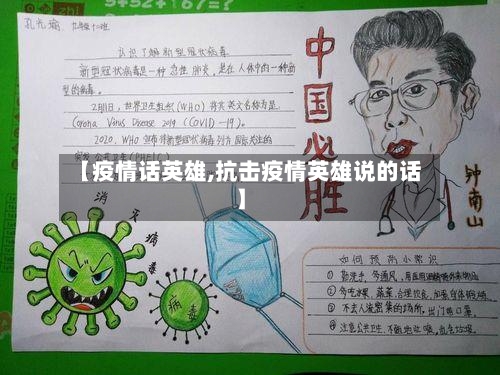 5+52+54=
孔光瑜. 九年级十二班
认识了解新型冠状病毒
新型冠状病毒是一种 急性 肺炎，是在 人体中的一种新
型的病毒。
2月11日，世界卫生组织(WHO) 将其 英文名称为是
Corona Virus Disease 2019 (COVID-19)。
2020. WHO 宣布将新型冠状病毒 列为 国际关注的
突发 公共卫生 (PHEIC)
中国必胜
钟南山
【疫情话英雄,抗击疫情英雄说的话
】
消灭病毒
病毒
如何预防小常识
① 勤洗手，多通风，
② 多吃水果、蔬菜，合理饮食，加强身体锻炼
③ 不去人流密集的场所，出门戴口罩。
④ 注意公共卫生，不随地吐痰，